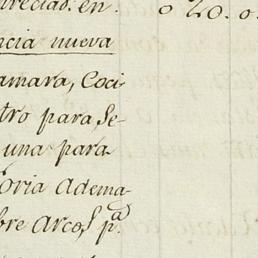 recias. en. o 20. o.
ncia nueva
amara, Coci
tro para Se-
una para
oria adema-
bre arcos, pª